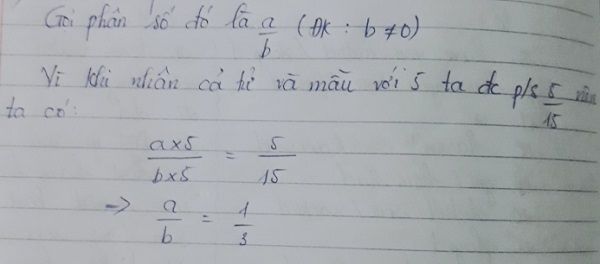 Gọi phân số đó là a/b (ĐK : b ≠ 0)
Vì khi nhân cả tử và mẫu với 5 ta đc p/s 5/15 nên
ta có:
a×5/b×5 = 5/15
=> a/b = 1/3